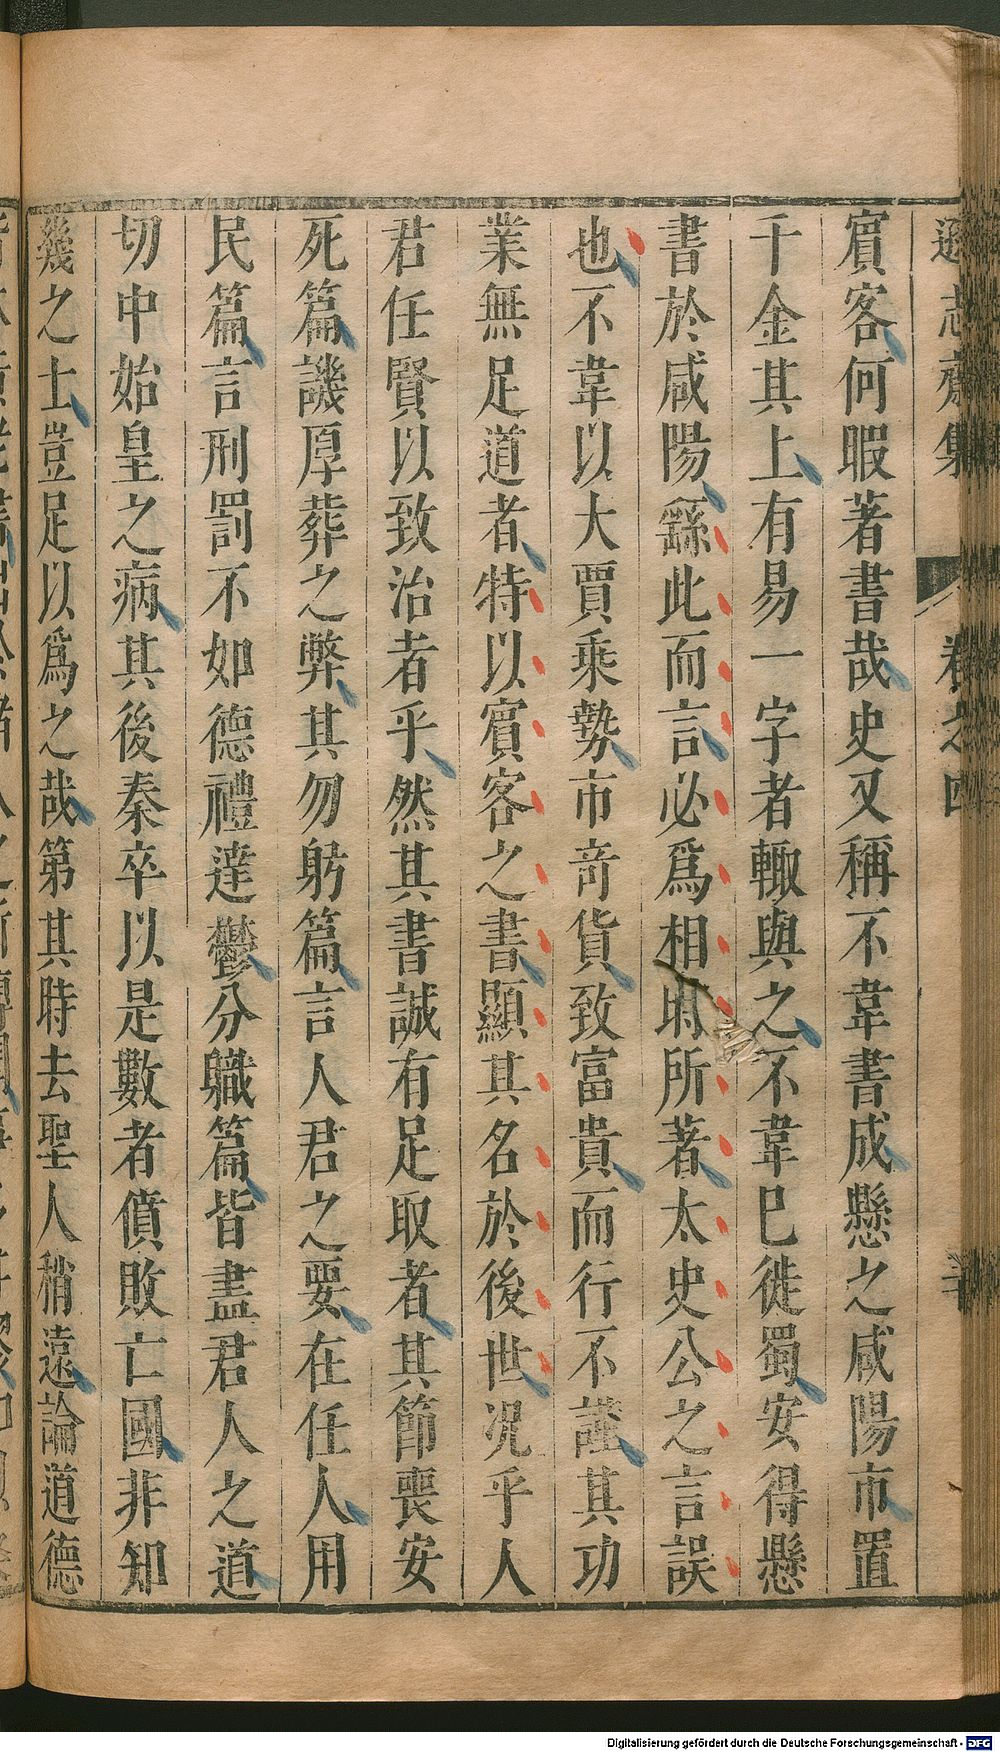 遜志齋集 卷之四
賓客何暇著書哉史又稱不韋書成懸之咸陽市置
千金其上有易一字者輙與之不韋已徙蜀安得懸
書於咸陽繇此而言必爲相時所著太史公之言誤
也不韋以大賈乘勢市竒貨致富貴而行不謹其功
業無足道者特以賓客之書顯其名於後世况乎人
君任賢以致治者乎然其書誠有足取者其節喪安
死篇譏厚葬之弊其勿躬篇言人君之要在任人用
民篇言刑罰不如德禮達鬱分職篇皆盡君人之道
切中始皇之病其後秦卒以是數者僨敗亡國非知
幾之士豈足以爲之哉第其時去聖人稍遠論道德
Digitalisierung gefördert durch die Deutsche Forschungsgemeinschaft - DFG